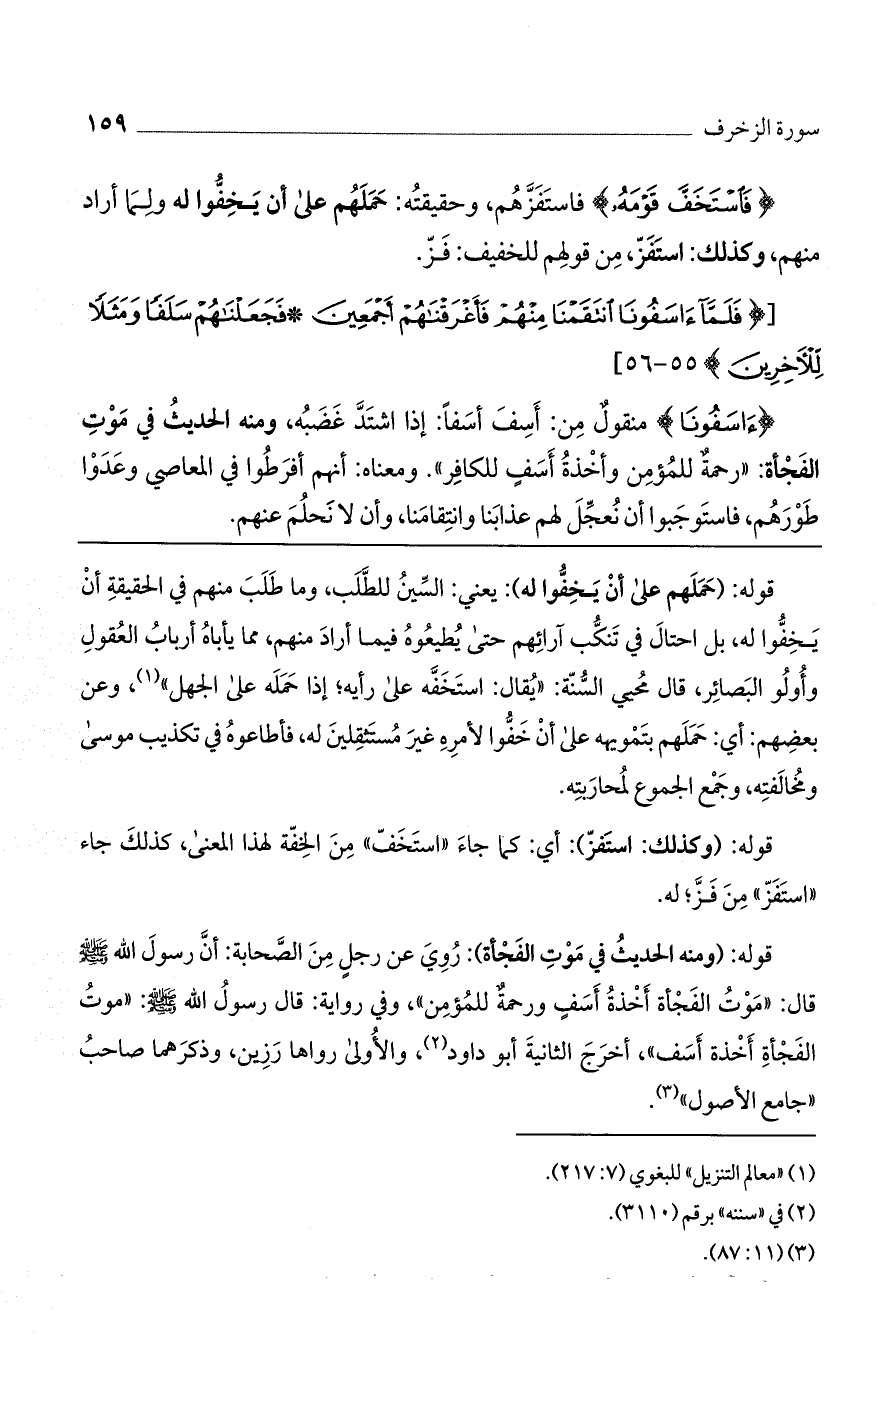 سورة الزخرف ١٥٩
﴿فَٱسْتَخَفَّ قَوْمَهُۥ﴾ فاستَفَزَّهُم، وحقيقتُه: حَمَلَهُم علىٰ أن يَـخِفُّوا له ولِـمَا أراد
منهم، وكذلك: استَفَزّ، مِن قولهم للخفيف: فَـزّ.
[﴿فَلَمَّآ ءَاسَفُونَا ٱنتَقَمْنَا مِنْهُمْ فَأَغْرَقْنَٰهُمْ أَجْمَعِينَ * فَجَعَلْنَٰهُمْ سَلَفًا وَمَثَلًا
لِّلْأَخِرِينَ﴾ ٥٥-٥٦]
﴿ءَاسَفُونَا﴾ منقولٌ مِن: أَسِفَ أسَفاً: إذا اشتَدَّ غَضَبُه، ومنه الحديثُ في مَوْتِ
الفَجْأة: «رحمةٌ للمُؤمِن وأخْذةُ أسَفٍ للكافِر». ومعناه: أنهم أفرَطُوا في المعاصي وعَدَوْا
طَوْرَهُم، فاستَوجَبوا أن نُعجِّلَ لهم عذابَنا وانتِقامَنا، وأن لا نَحلُمَ عنهم.
قوله: (حَمَلَهم علىٰ أنْ يَـخِفُّوا له): يعني: السِّينُ للطَّلَب، وما طَلَبَ منهم في الحقيقةِ أنْ
يَـخِفُّوا له، بل احتالَ في تَنكُّب آرائِهم حتىٰ يُطيعُوهُ فيمـا أرادَ منهم، مما يأباهُ أربابُ العُقولِ
وأُولُو البَصائِر، قال مُحيي السُّنّة: «يُقال: استَخَفَّه علىٰ رأيه؛ إذا حَمَلَه علىٰ الجهل»(١)، وعن
بعضِهم: أي: حَمَلَهم بتَمْويهه علىٰ أنْ خَفُّوا لأمرِهِ غيرَ مُستَثقِلينَ له، فأطاعوهُ في تكذيب موسىٰ
ومُخالَفتِه، وجَمْع الجموع لمُحارَبتِه.
قوله: (وكذلك: استَفزّ): أي: كما جاءَ «استَخَفّ» مِنَ الخِفّة لهذا المعنىٰ، كذلكَ جاء
«استَفَزّ» مِنَ فَـزَّ؛ له.
قوله: (ومنه الحديثُ في مَوْتِ الفَجْأة): رُوِيَ عن رجلٍ مِنَ الصَّحابة: أنَّ رسولَ الله ﷺ
قال: «مَوْتُ الفَجْأة أَخْذةُ أسَفٍ ورحمةٌ للمُؤمِن»، وفي رواية: قال رسولُ الله ﷺ: «موتُ
الفَجْأةِ أَخْذة أَسَف»، أخرَجَ الثانيةَ أبو داود(٢)، والأُولىٰ رواها رَزِين، وذكرَهما صاحبُ
«جامع الأصول»(٣).
(١) «معالم التنزيل» للبغوي (٧: ٢١٧).
(٢) في «سننه» برقم (٣١١٠).
(٣) (١١: ٨٧).